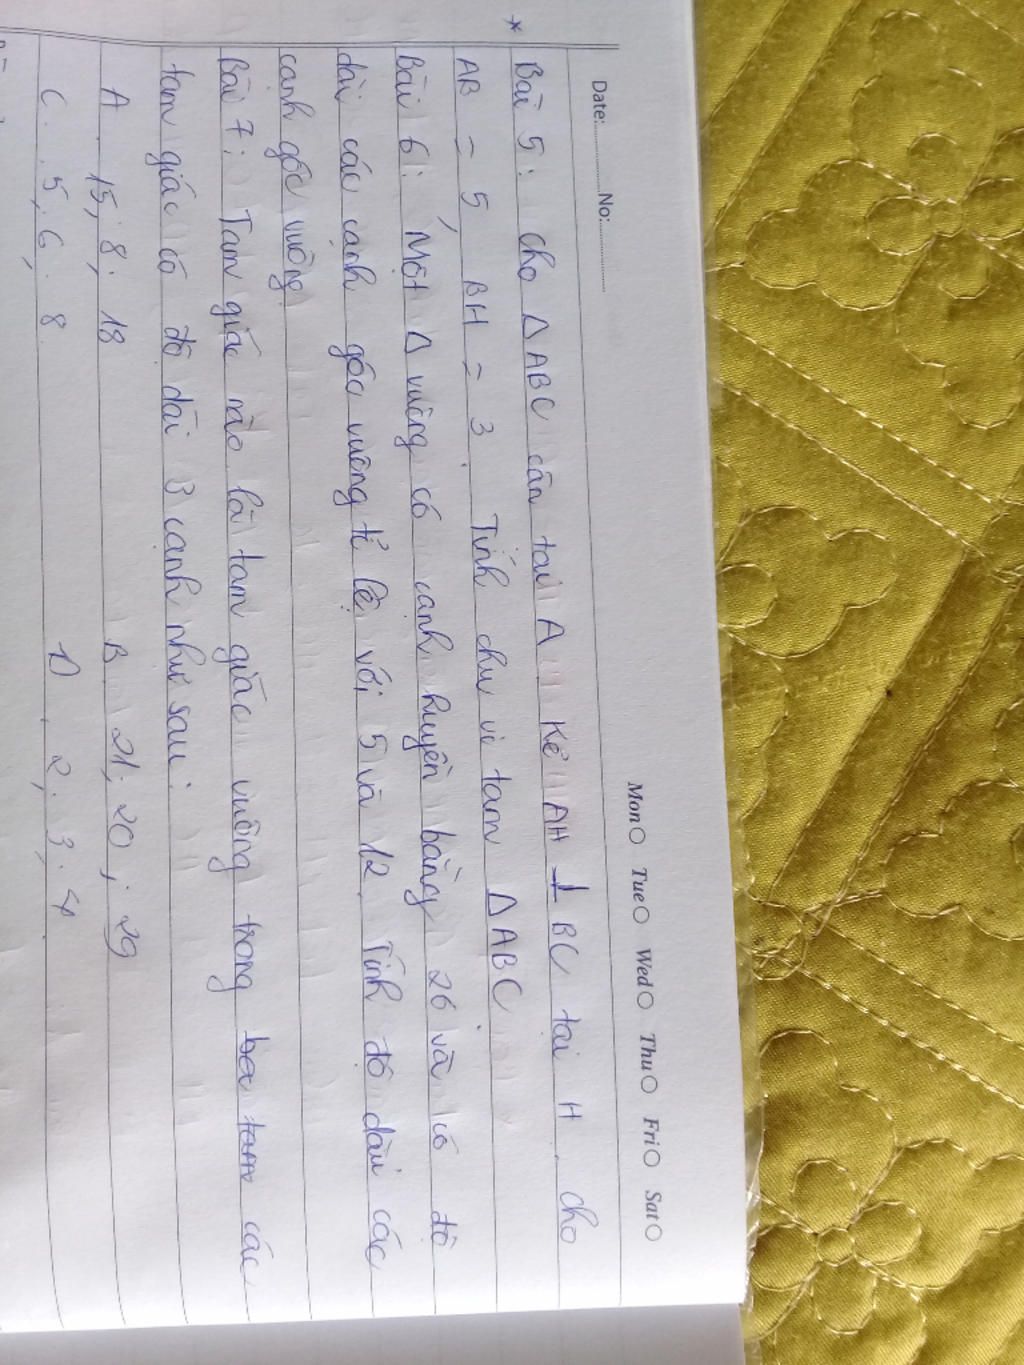 Date:............No:................
Mon Tue Wed Thu Fri Sat
* Bài 5: cho Δ ABC cân tại A Kẻ AH ⊥ BC tại H. cho
AB = 5, BH = 3. Tính chu vi tam Δ ABC.
Bài 6: Một Δ vuông có cạnh huyền bằng 26 và có độ
dài các cạnh góc vuông tỉ lệ với 5 và 12. Tính độ dài các
cạnh góc vuông
Bài 7: Tam giác nào là tam giác vuông trong các
tam giác có độ dài 3 cạnh như sau:
A. 15; 8; 18 B. 21; 20; 29
C. 5; 6; 8 D. 2; 3; 4.